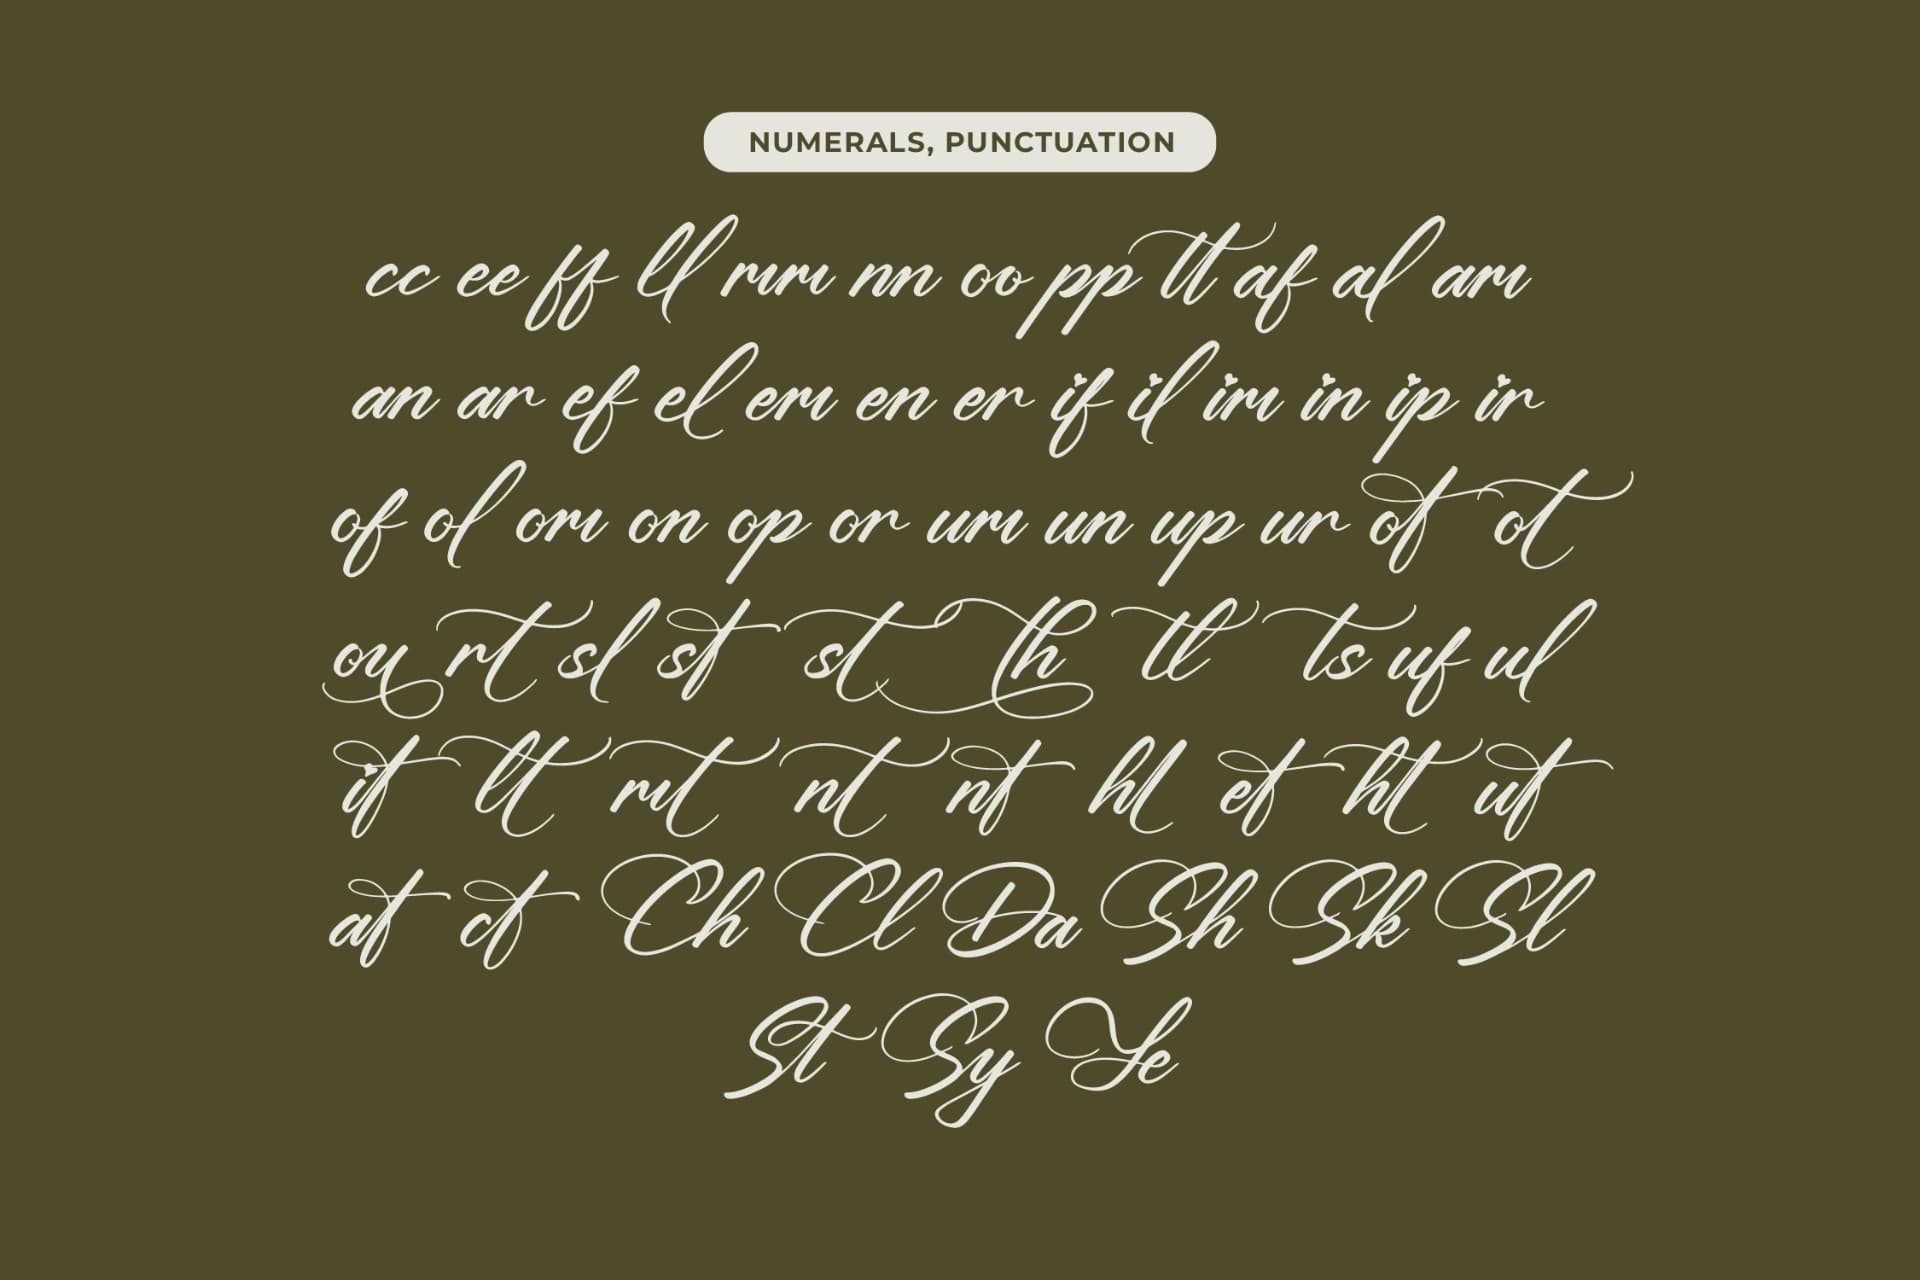 NUMERALS, PUNCTUATION
cc ee ff ll mm nn oo pp tt af al am
an ar ef el em en er if il im in ip ir
of ol om on op or um un up ur of ot
ou rt sl sf st th tl ts uf ul
if lt mt nt nf ht ef ht uf
af cf Ch Cl Da Sh Sk Sl
St Sy Ye